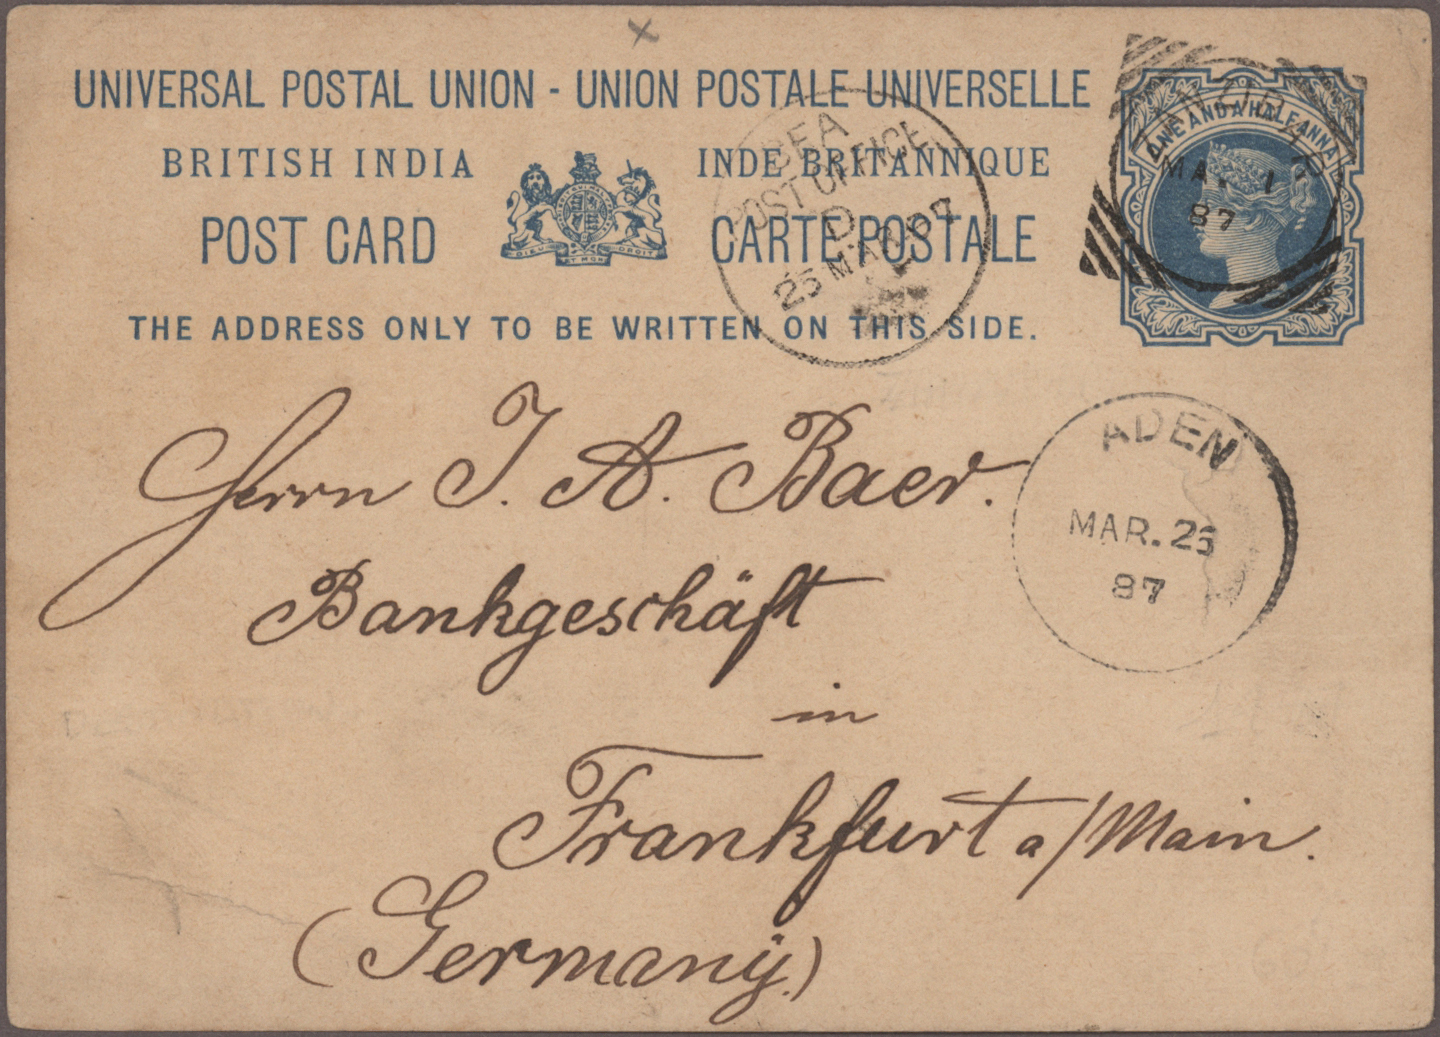 UNIVERSAL POSTAL UNION - UNION POSTALE UNIVERSELLE
BRITISH INDIA
INDE BRITANNIQUE
POST CARD
CARTE POSTALE
DIEU ET MON DROIT
THE ADDRESS ONLY TO BE WRITTEN ON THIS SIDE.
ONE AND A HALF ANNA
MA. 1
87
SEA
POST OFFICE
D
25 MAR 87
ADEN
MAR. 25
87
Herrn J. A. Baer.
Bankgeschäft
in
Frankfurt a/Main.
(Germany.)